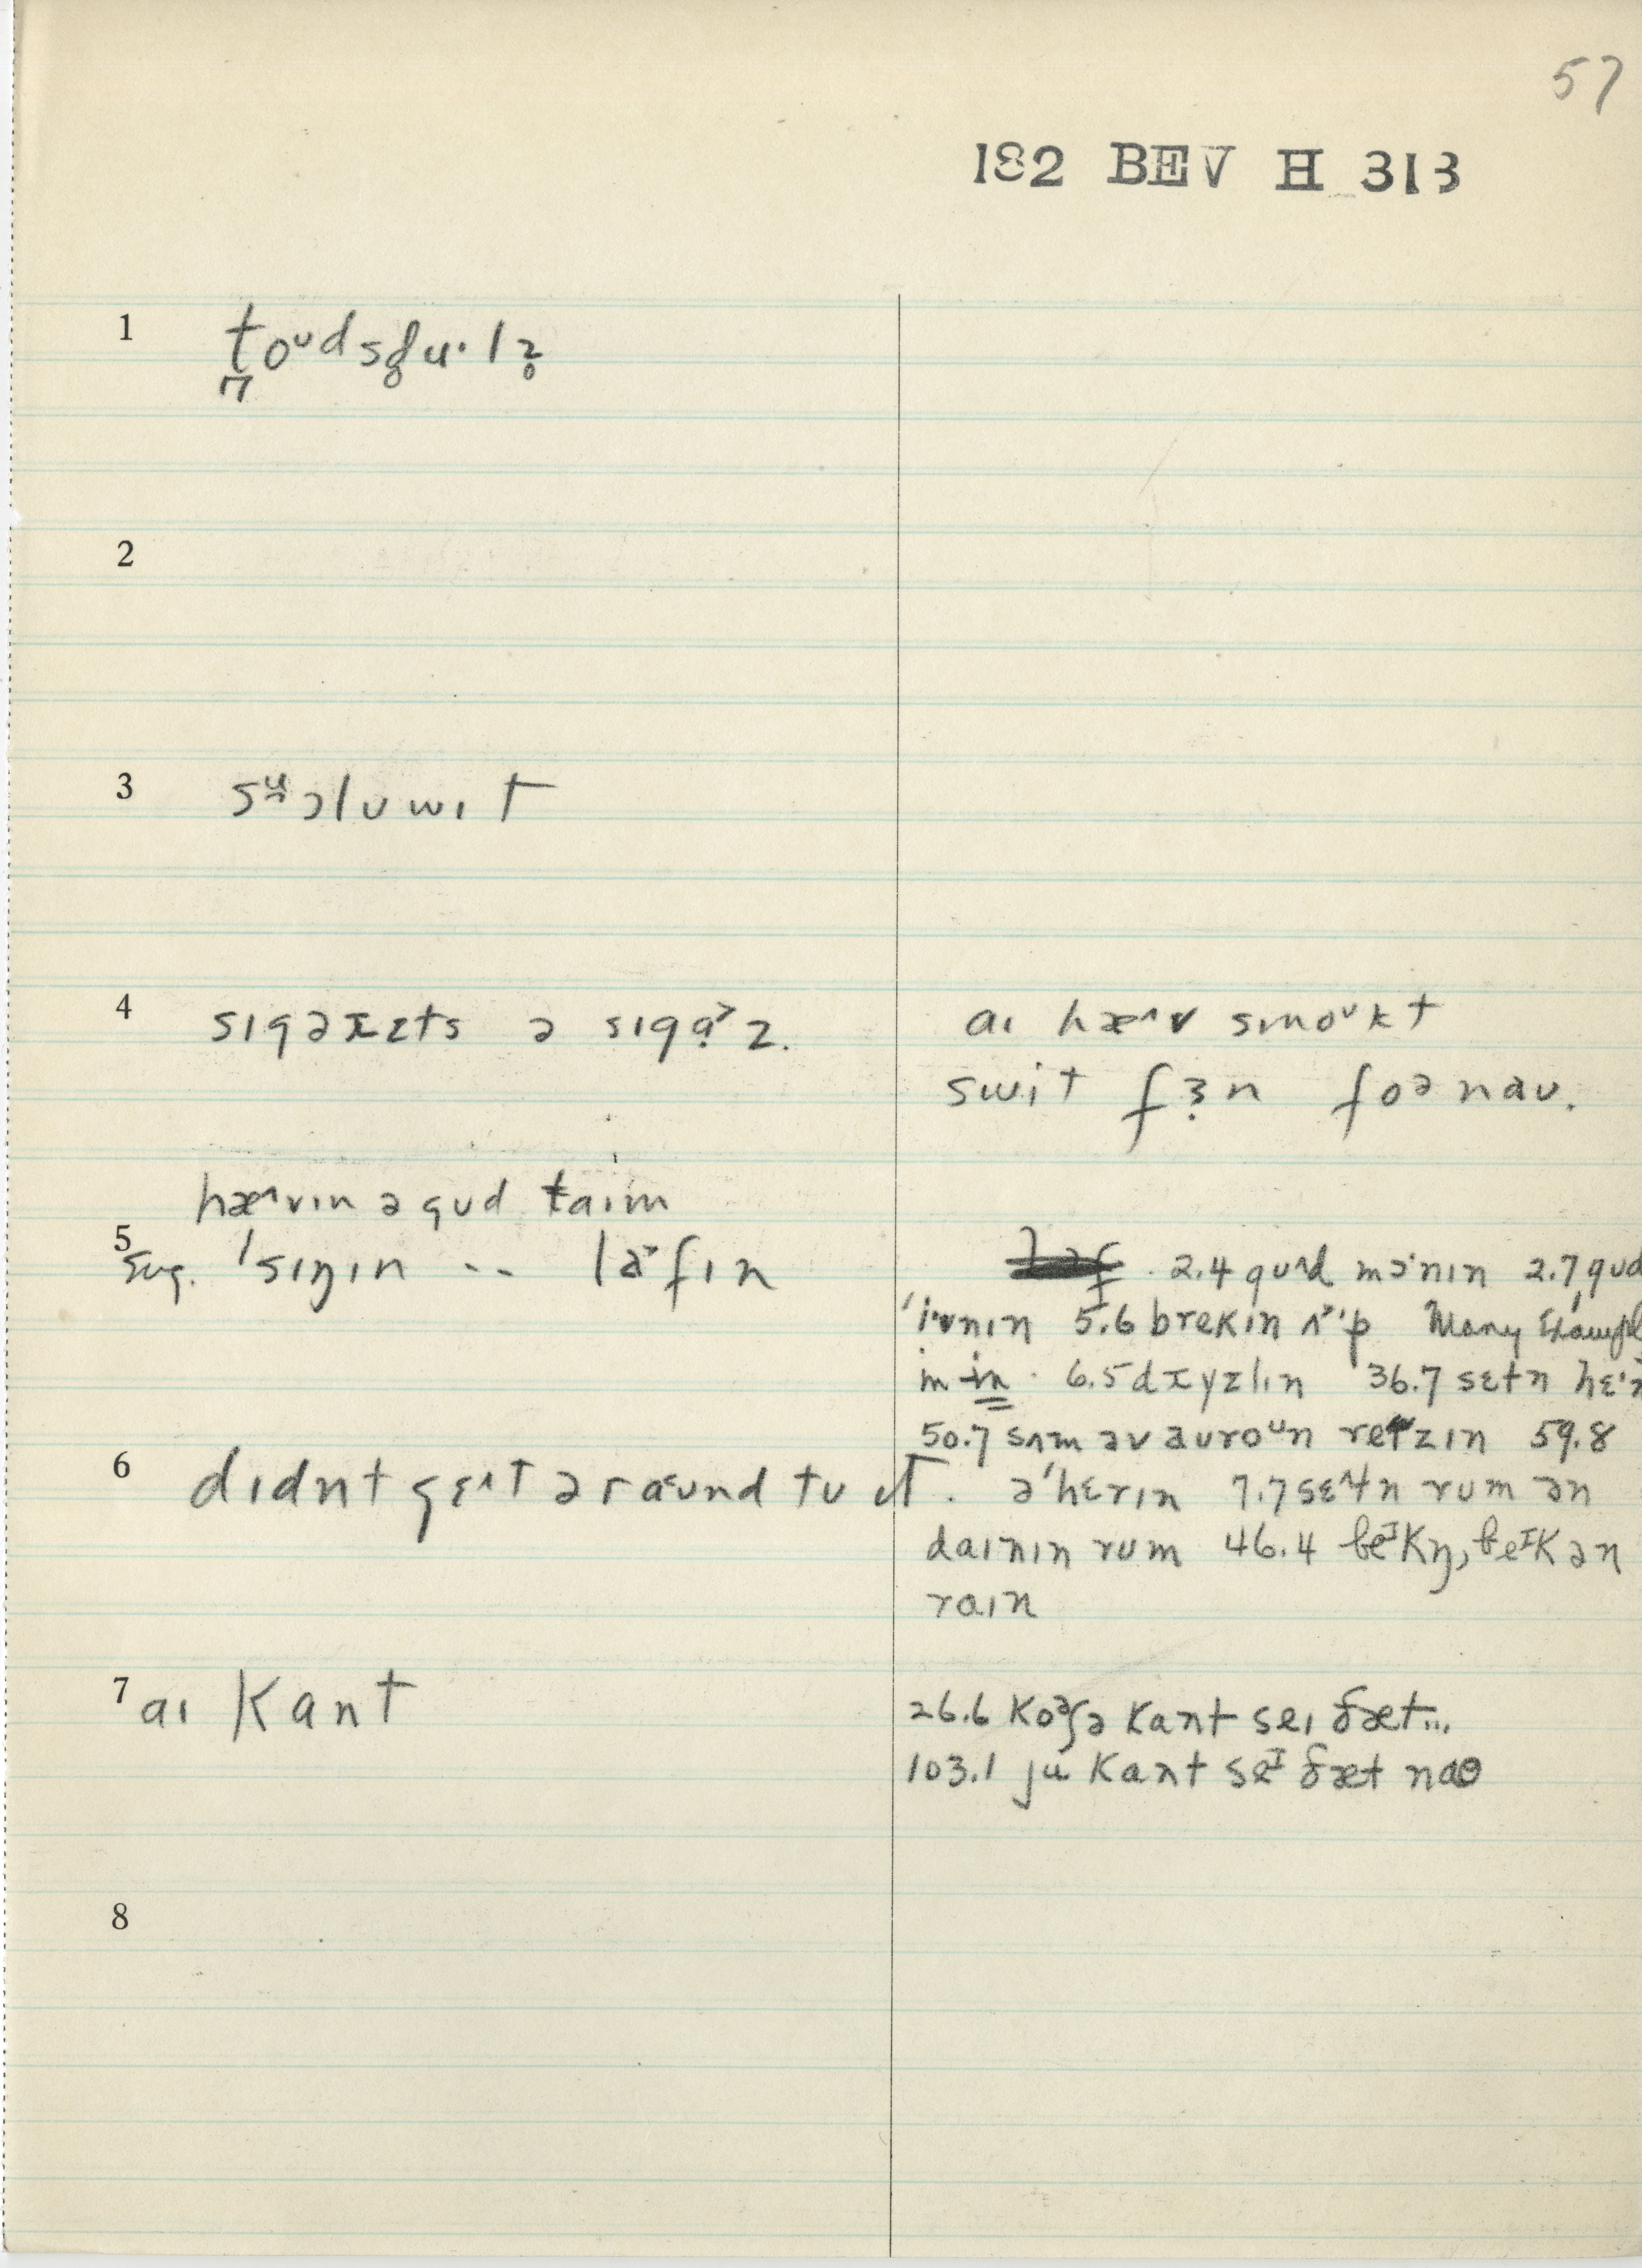 57
182 BEV H 313
1 t̪oᴜdsd̥u·lɜ̥
2
3 sᵘɔlʊwɪt
4 sɪgərɛts ə sɪgɑ̣˃z.
aɪ hæ^v smoᵘkt
swit fɜ̣n foənaʊ.
hæ^vɪn ə gʊd taɪm
5 sug. 'sɪŋɪn -- la˃fɪn
2.4 gʊ^d mɔ'nɪn 2.7 gʊd
'ivnɪn 5.6 brekɪn ʌ˃'p Many Exampl
in in 6.5 drɪzlɪn 36.7 sɛtn hɛ'n
50.7 sʌm əv aʊroᵘn reɪzɪn 59.8
6 dɪdnt gɛ^t əraʊnd tʊ ɪt.
ə'hɛrɪn 7.7 sɛ^tn rum ən
daɪnɪn rum 46.4 beᴵkŋ, beᴵkən
raɪn
7 aɪ kant
26.6 koᵊsə kant seɪ ðæt...
103.1 ju kant seᴵ ðæt naʊ
8